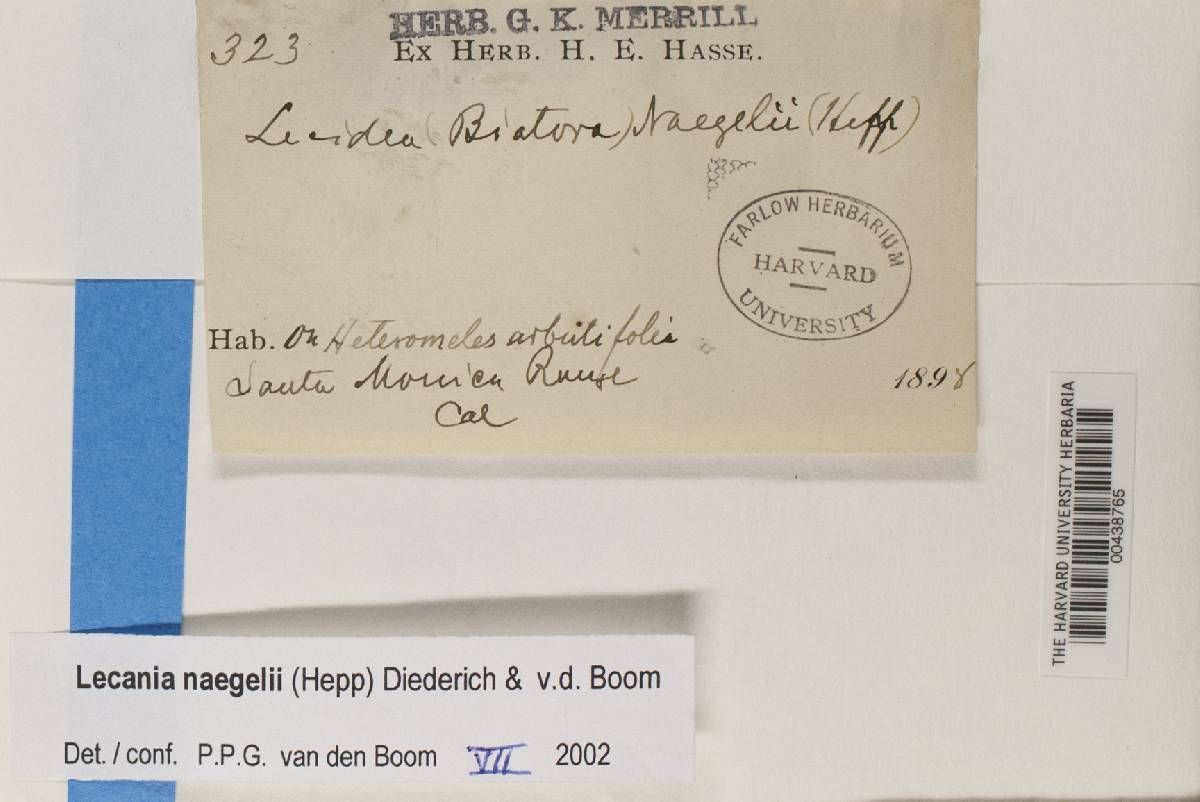 HERB. G. K. MERRILL
323
EX HERB. H. E. HASSE.
Lecidea (Biatora) Naegelii (Hepp)
FARLOW HERBARIUM
HARVARD
UNIVERSITY
Hab. On Heteromeles arbutifolia
Santa Monica Range
1898
Cal
THE HARVARD UNIVERSITY HERBARIA
00438765
Lecania naegelii (Hepp) Diederich & v.d. Boom
Det. / conf. P.P.G. van den Boom VII 2002